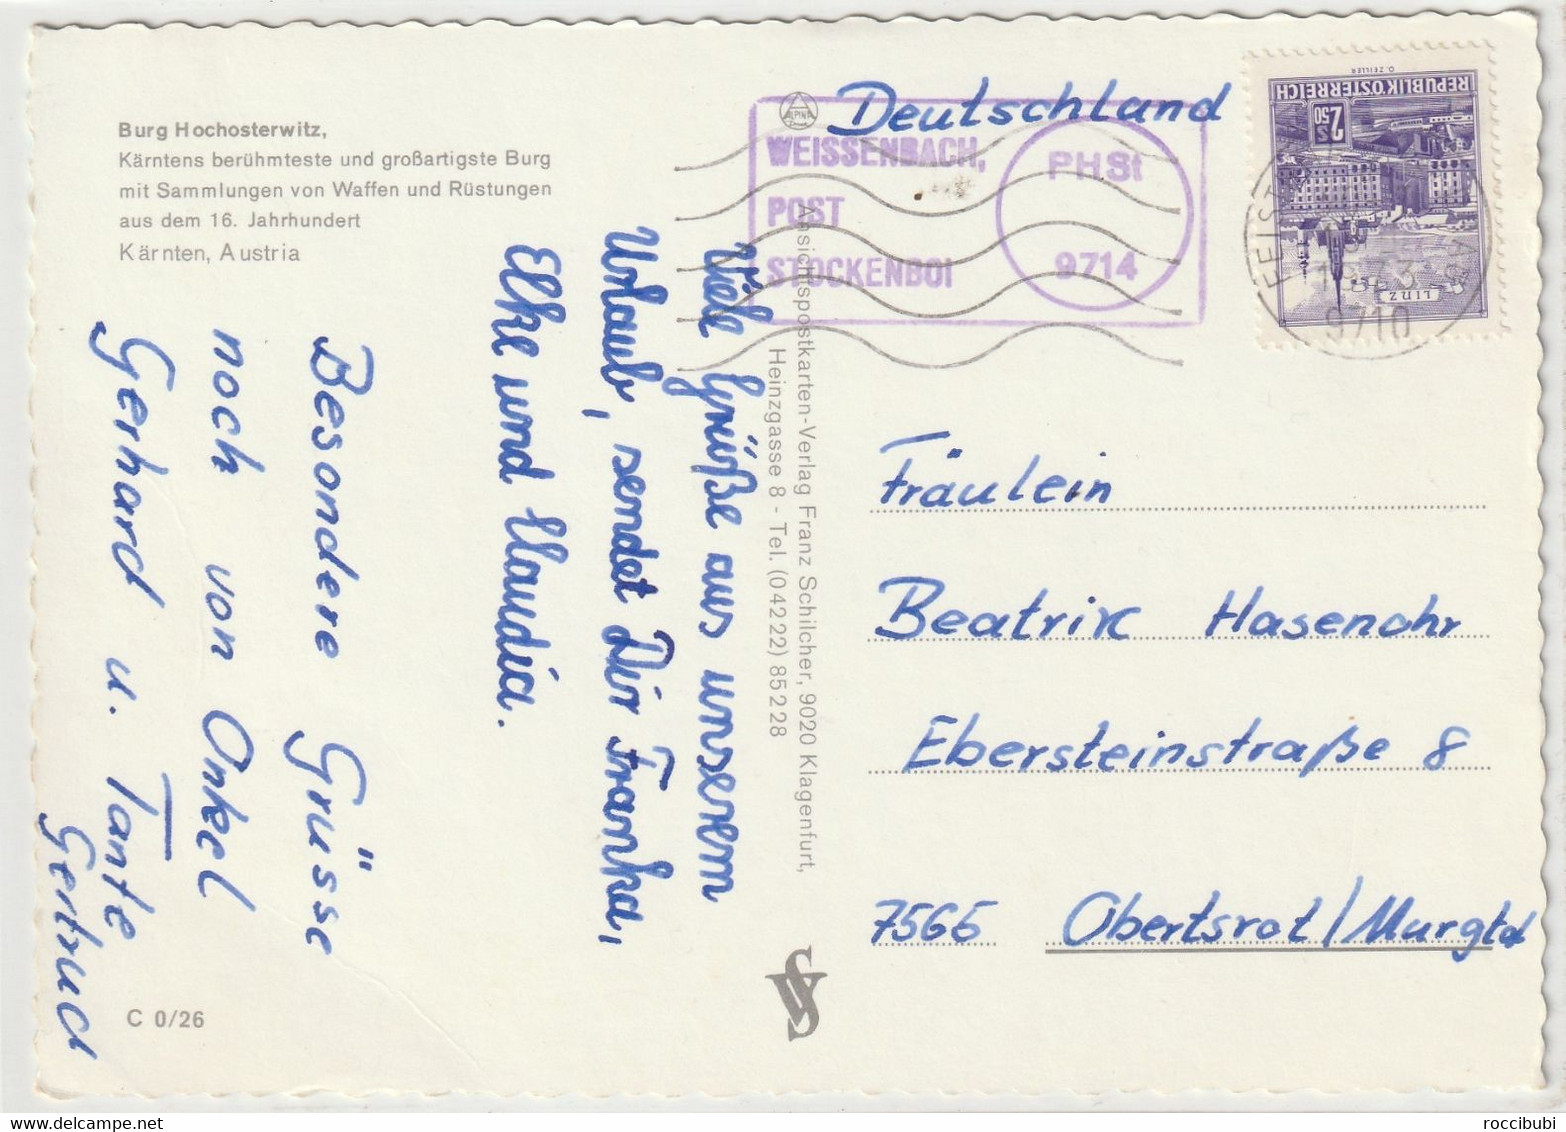 Burg Hochosterwitz,
Kärntens berühmteste und großartigste Burg
mit Sammlungen von Waffen und Rüstungen
aus dem 16. Jahrhundert
Kärnten, Austria
Viele Grüße aus unserem
Urlaub, sendet Dir Franka,
Elke und Claudia.
Besondere Grüsse
noch von Onkel
Gerhard u. Tante
Gertrud
C 0/26
Ansichtspostkarten-Verlag Franz Schilcher, 9020 Klagenfurt,
Heinzgasse 8 - Tel. (04222) 85228
ALPINA
Deutschland
WEISSENBACH,
POST
STOCKENBOI
PHSt
9714
REPUBLIK ÖSTERREICH
S 2.50
LINZ
O. ZEILER
9710
Fräulein
Beatrix Hasenohr
Ebersteinstraße 8
7565 Obertsrot/Murgtal
roccibubi